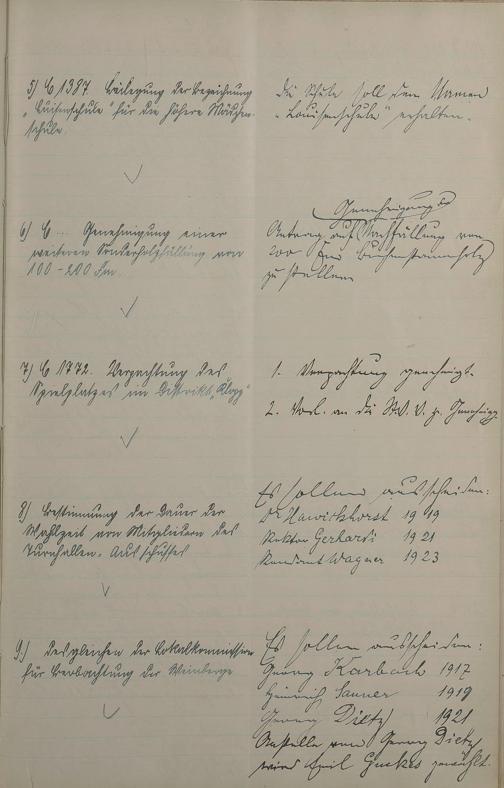 5) C 1387. Beilegung der Bezeichnung
"Luisenschule" für die höhere Mädchen-
schule.
Die Schule soll den Namen
"Louisenschule" erhalten.
6) C ... Genehmigung einer
weiteren Sonderholzfällung von
100-200 Fm.
Genehmigung
Antrag auf Nachfällung von
200 Fm Buchenstammholz
zu stellen
7) C 1772. Verpachtung des
Spielplatzes im Distrikt "Klopp"
1. Verpachtung genehmigt.
2. Vorl. an die St. V. V. z. Genehmigg.
8) Bestimmung der Dauer der
Wahlzeit von Mitgliedern des
Turnhallen-Ausschusses
Es sollen ausscheiden:
Dr Hawickhorst 1919
Rektor Gerhardi 1921
Rendant Wagner 1923
9.) Desgleichen der Lokalkommission
für Beobachtung der Weinberge
Es sollen ausscheiden:
Georg Karbach 1917
Heinrich Sauer 1919
Georg Dietz 1921
Anstelle von Georg Dietz
wird Emil gewählt.